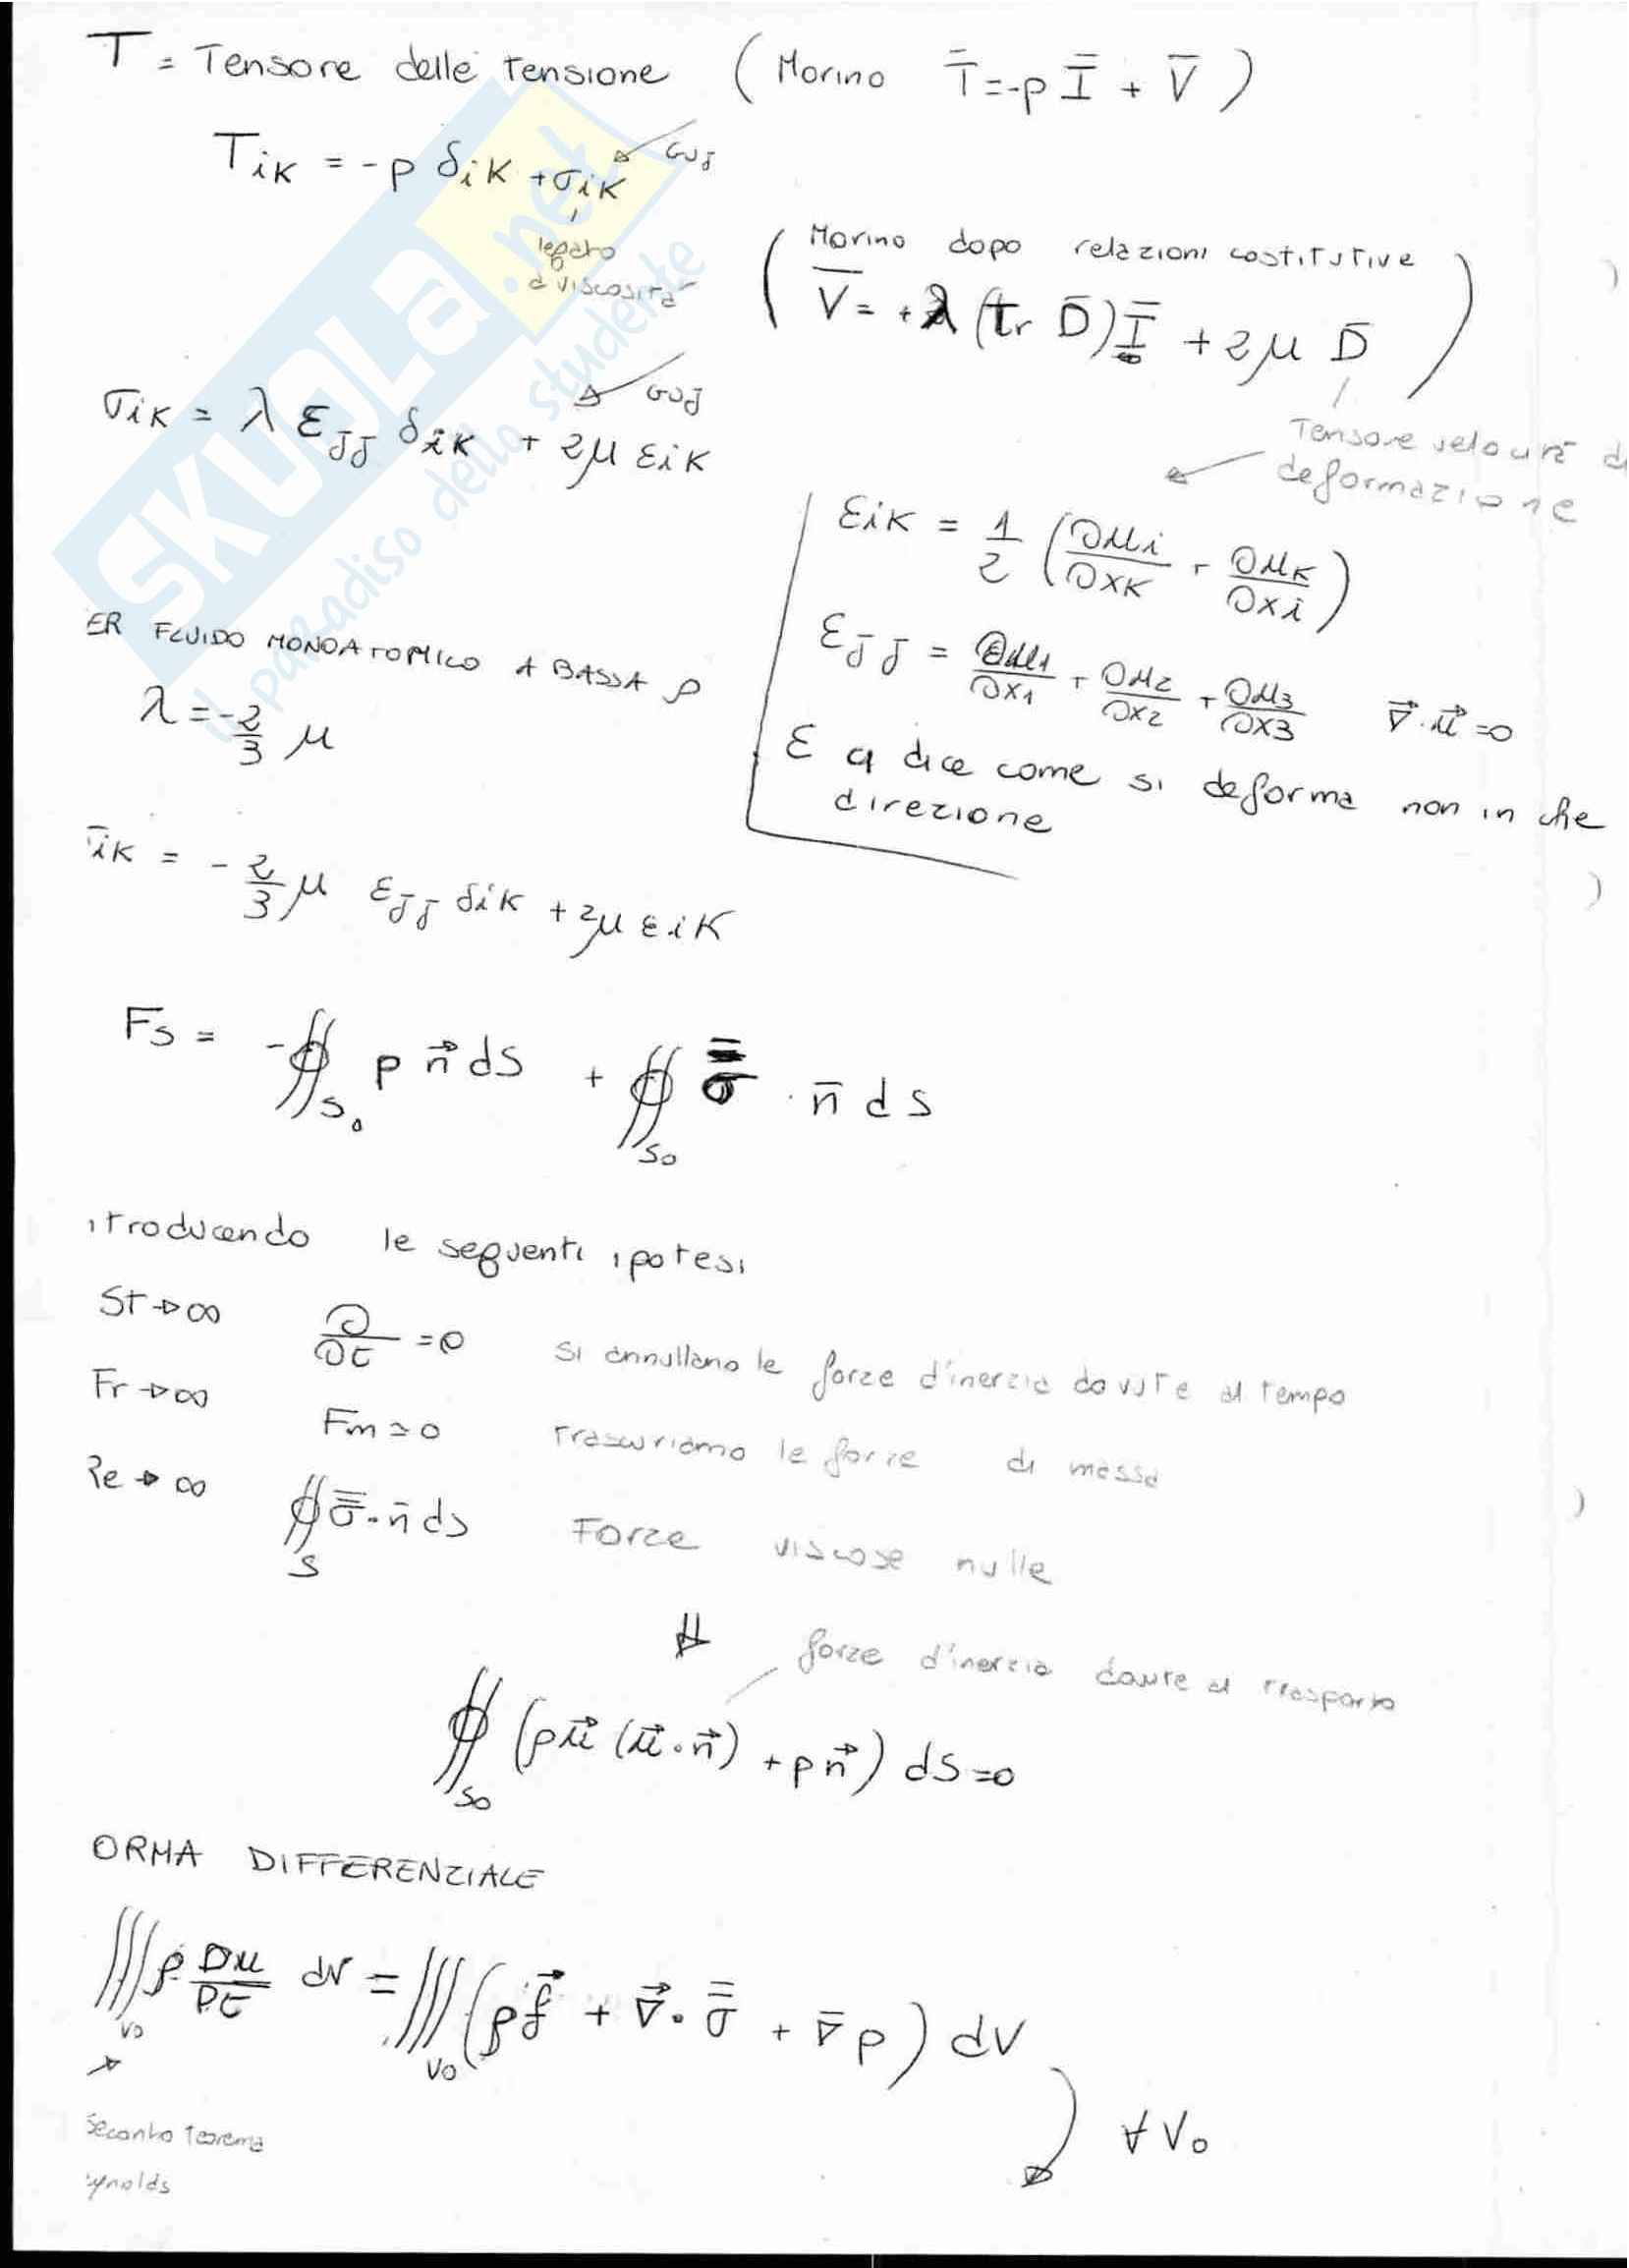 T = Tensore delle tensione ( Morino T̄ = -p Ī̄ + V̄ )
Tik = -p δik + σik
GUJ
legato
a viscosità
( Morino dopo relazioni costitutive
V̄ = +λ (tr D̄) Ī̄ + 2μ D̄ )
GUJ
σik = λ εJJ δik + 2μ εik
Tensore velocità di
deformazione
εik = 1/2 (∂ui/∂xk + ∂uk/∂xi)
εJJ = ∂u1/∂x1 + ∂u2/∂x2 + ∂u3/∂x3 ∇⃗·u⃗ = 0
ε ci dice come si deforma non in che
direzione
ER FLUIDO MONOATOMICO A BASSA ρ
λ = -2/3 μ
σik = -2/3 μ εJJ δik + 2μ εik
Fs = -∯S0 p n⃗ dS + ∯S0 σ̿ · n̄ dS
itroducendo le seguenti ipotesi
St → ∞ ∂/∂t = 0 si annullano le forze d'inerzia dovute al tempo
Fr → ∞ Fm ≃ 0 trascuriamo le forze di massa
Re → ∞ ∯S σ̿ · n̄ ds Forze viscose nulle
⇓ forze d'inerzia dovute al trasporto
∯S0 (ρu⃗ (u⃗·n⃗) + pn⃗) dS = 0
ORMA DIFFERENZIALE
∭V0 ρ Du/Dt dV = ∭V0 (ρf⃗ + ∇⃗·σ̿ + ∇̄p) dV
∀ V0
Secondo teorema
ynolds
SKUOLA.net
il paradiso dello studente